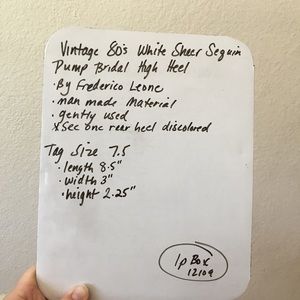 Vintage 80's White Sheer Sequin
Pump Bridal High Heel
• By Frederico Leone
• man made Material
• gently used
*See one rear heel discolored
Tag Size 7.5
• length 8.5"
• width 3"
• height 2.25"
1p Box
12109